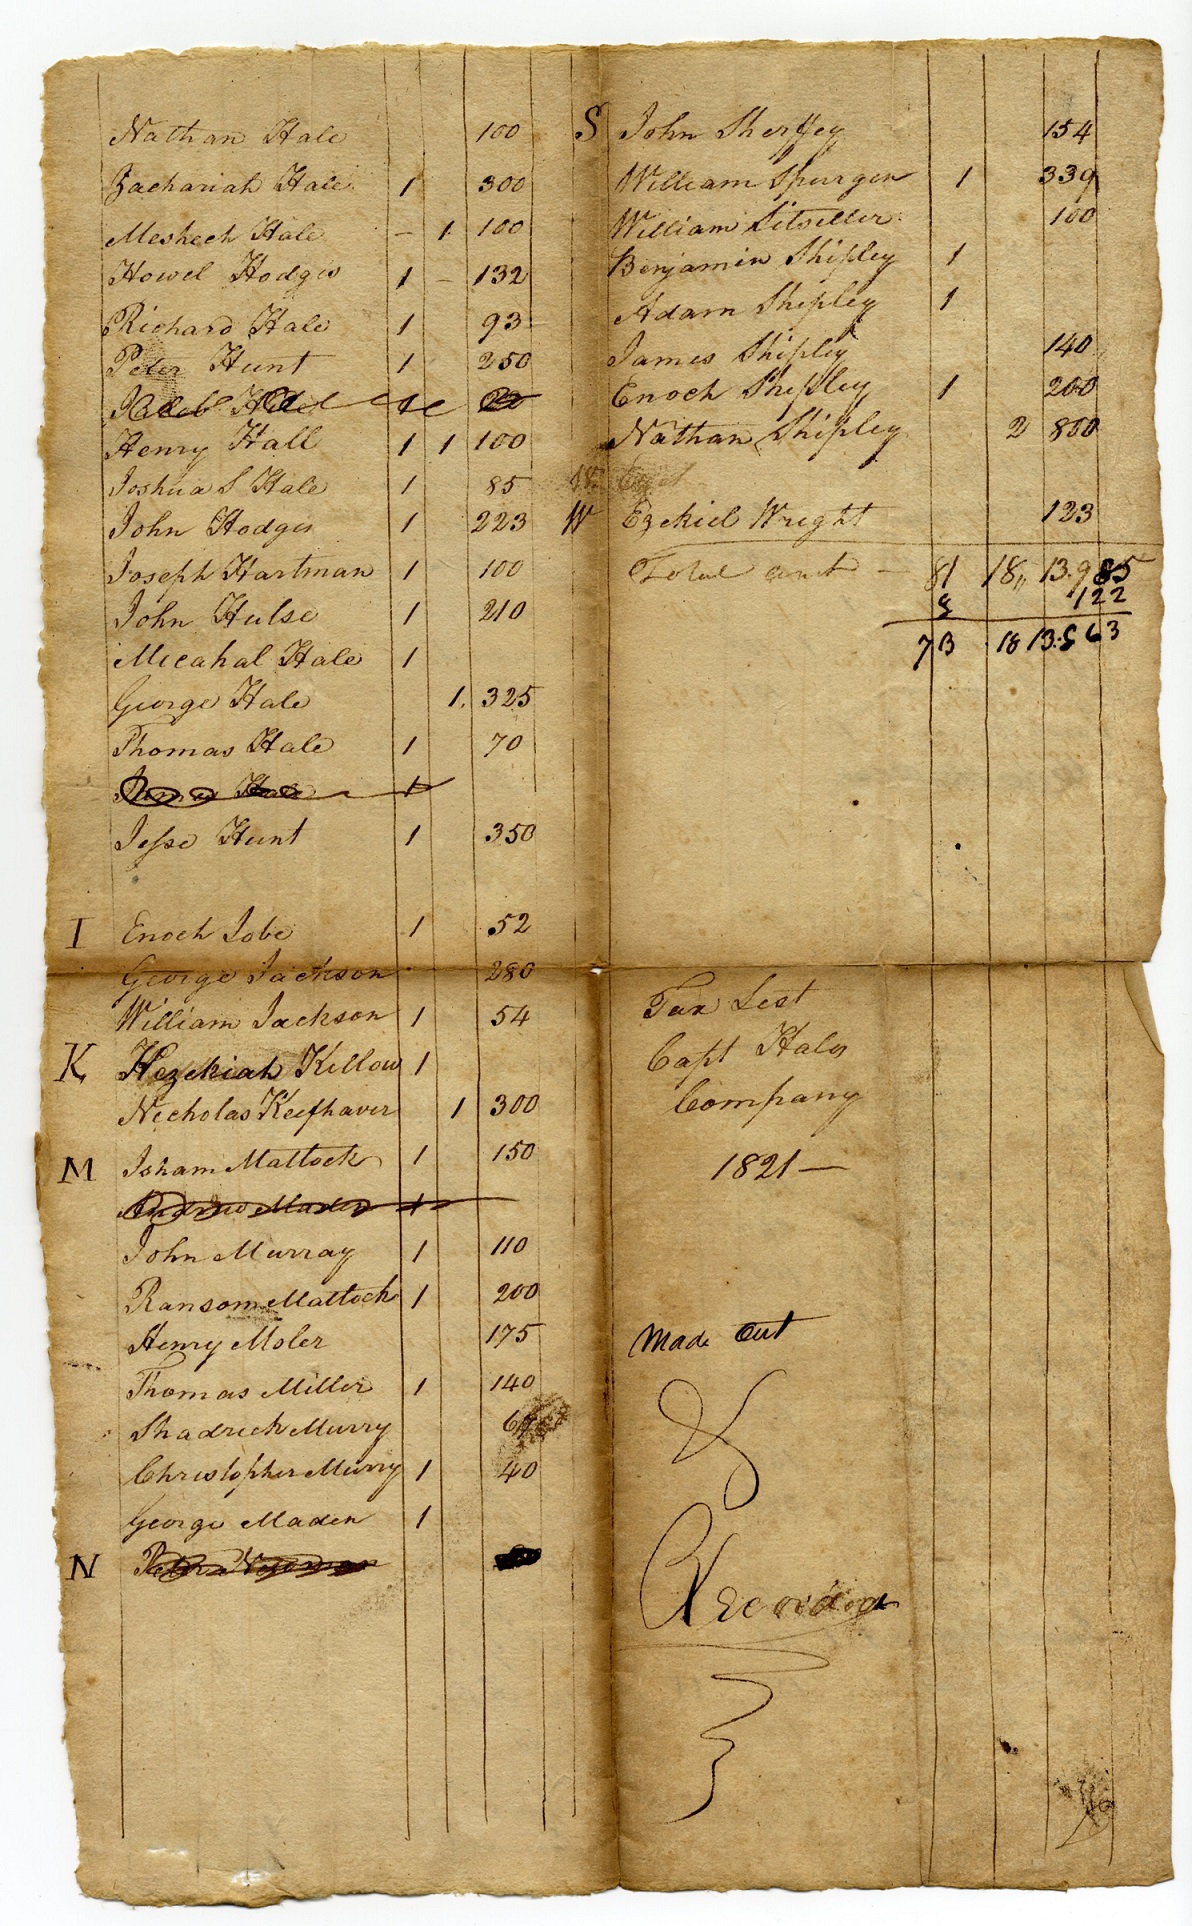 Nathan Hale 100
Zachariah Hale 1 300
Meshech Hale - 1 100
Howel Hodges 1 - 132
Richard Hale 1 93
Peter Hunt 1 250
1
Henry Hall 1 1 100
Joshua S Hale 1 85
John Hodges 1 223
Joseph Hartman 1 100
John Hulse 1 210
Micahal Hale 1
George Hale 1. 325
Thomas Hale 1 70
James Hale 1
Jesse Hunt 1 350
I Enoch Jobe 1 52
George Jackson 280
William Jackson 1 54
K Hezekiah Killow 1
Nicholas Keefhaver 1 300
M Isham Mattock 1 150
Andrew Maden 1
John Murray 1 110
Ransom Mattock 1 200
Henry Moler 175
Thomas Miller 1 140
Shadrich Murry
Christopher Murry 1 40
George Maden 1
N Peter
S John Sherfey 154
William Spurgen 1 339
William Sitseller 100
Benjamin Shipley 1
Adam Shipley 1
James Shipley 140
Enoch Shipley 1 200
Nathan Shipley 2 800
W Ezekiel Wright 123
Total amt - 81 18,, 13.985
8 122
73 18 13.863
Tax List
Capt Hales
Company
1821 —
Made Out
&
Recorded